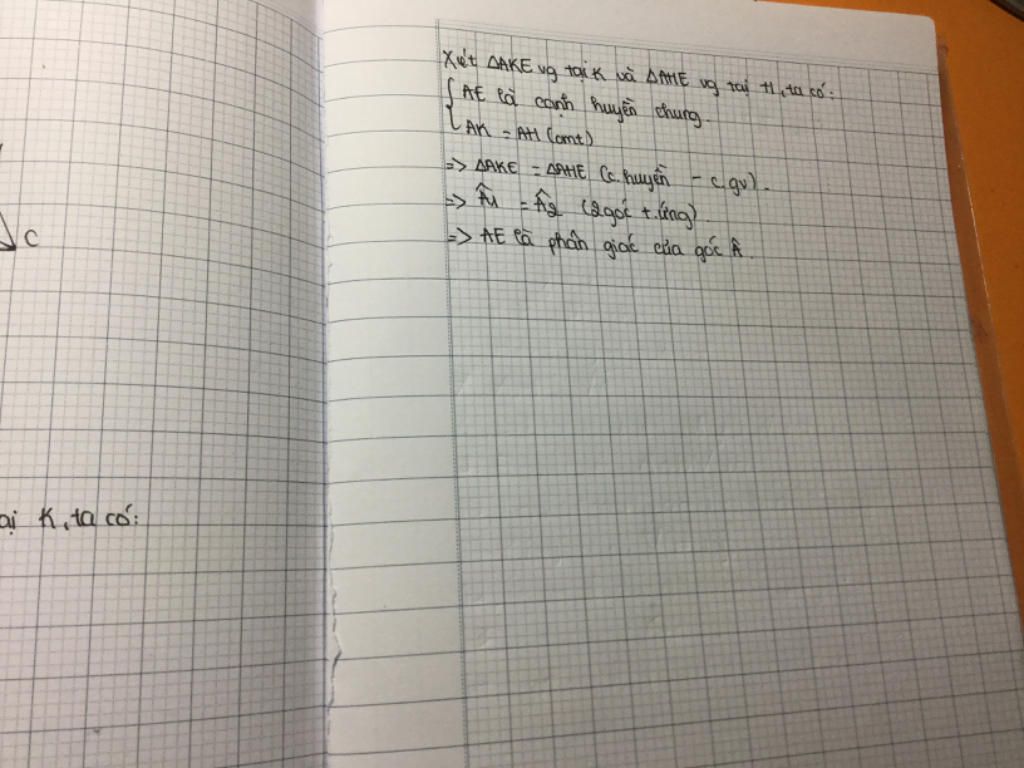 C
ại K, ta có:
Xét ΔAKE vg tại K và ΔAHE vg tại H, ta có:
AE là cạnh huyền chung.
AK = AH (cmt)
=> ΔAKE = ΔAHE (c.huyền - c.gv).
=> Â1 = Â2 (2 góc t.ứng)
=> AE là phân giác của góc Â.